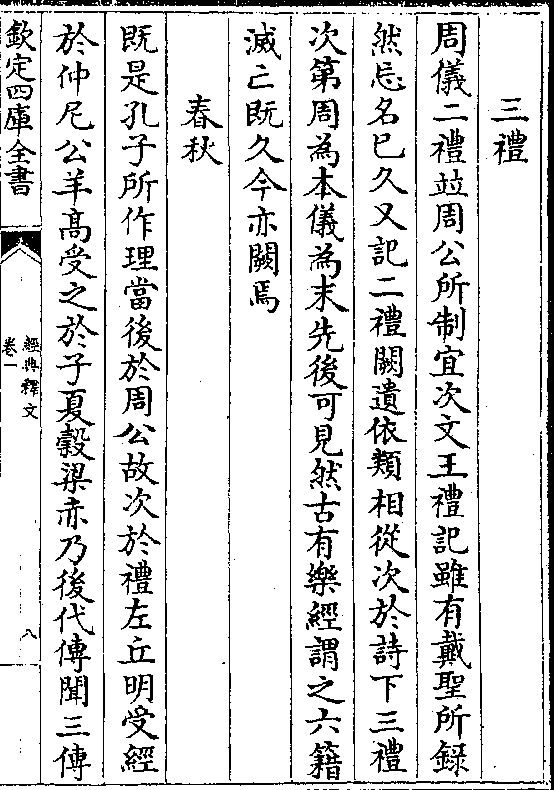 三禮
周儀二禮竝周公所制宜次文王禮記雖有戴聖所録
然忘名巳久又記二禮闕遺依類相從次於詩下三禮
次第周為本儀為末先後可見然古有樂經謂之六籍
滅亡既久今亦闕焉
春秋
既是孔子所作理當後於周公故次於禮左丘明受經
於仲尼公羊髙受之於子夏穀梁赤乃後代傳聞三傳
欽定四庫全書
經典釋文
卷一
八